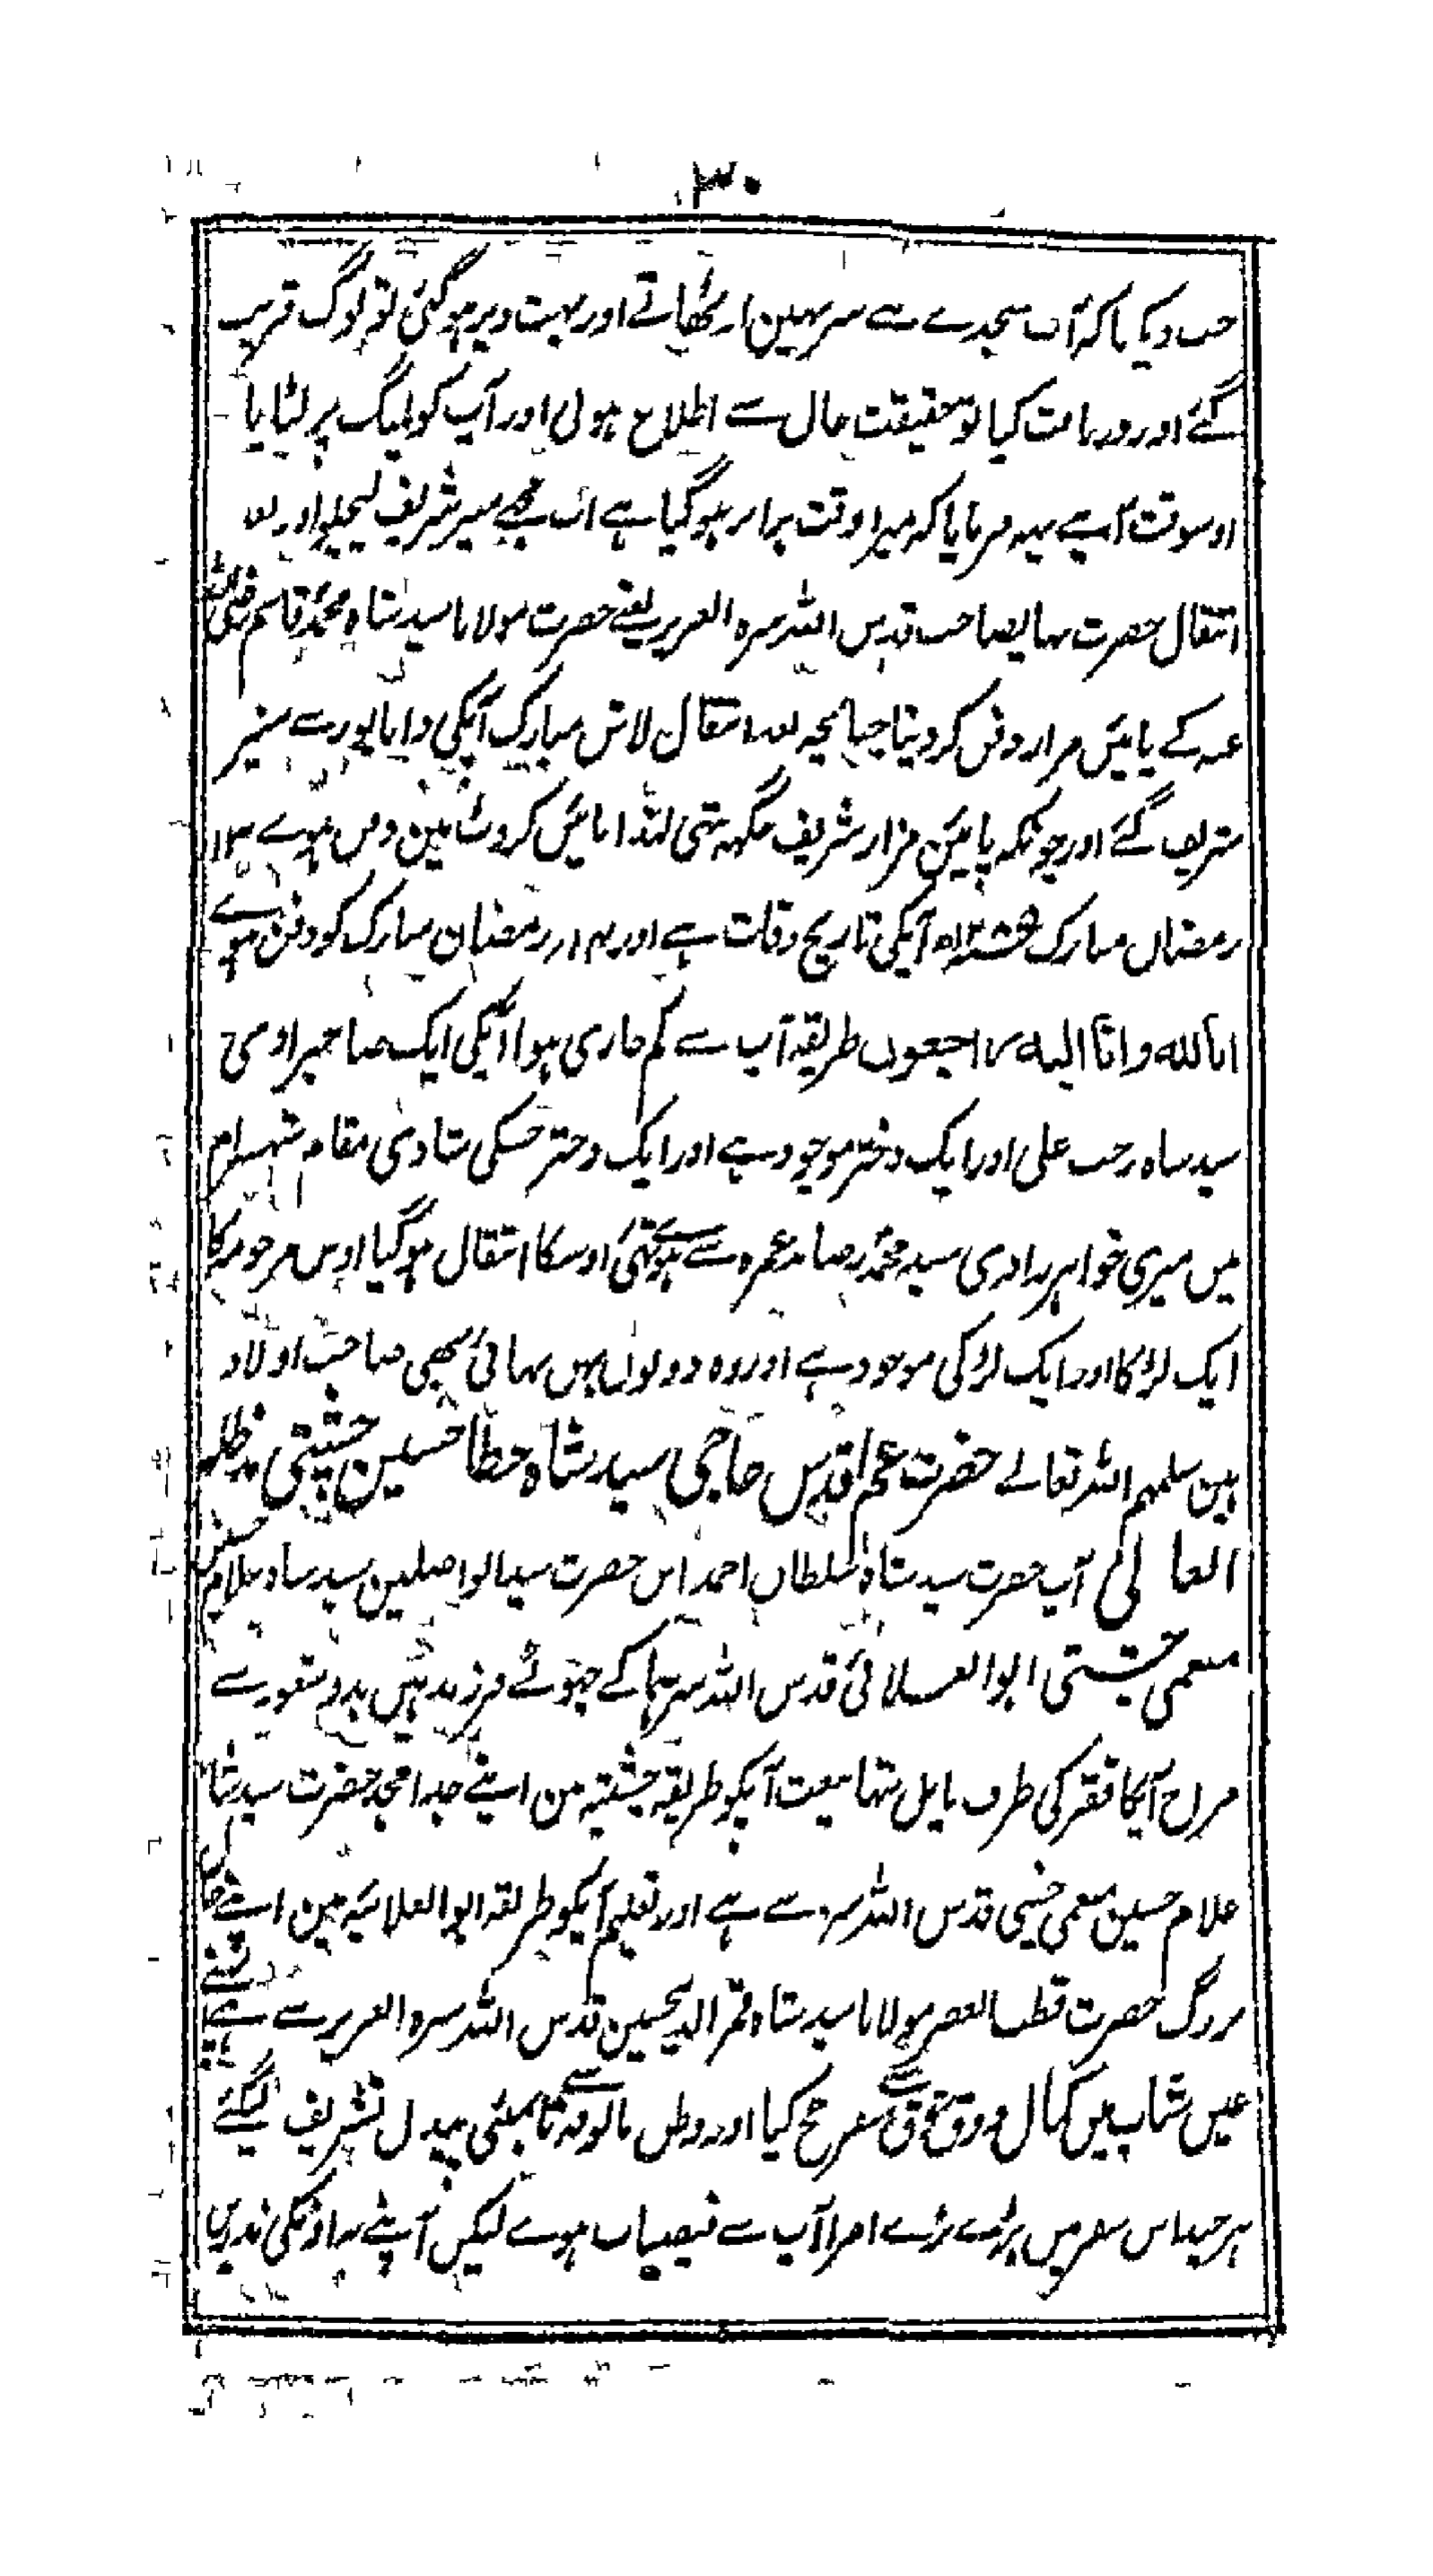 ۳۰
جب دیکھا کہ آپ سجدے سے سر نہین اوٹھاتے اور بہت دیر ہو گئی تو لوگ قریب
گئے اور دریافت کیا تو حقیقت حال سے اطلاع ہوئی اور آپ کو پلنگ پر لٹایا
اوسوقت آپنے یہہ فرمایا کہ میرا وقت برابر ہو گیا ہے اب مجھے منیر شریف لیچلو اور بعد
انتقال حضرت بہائیصاحب قدس اللہ سرہ العزیز یعنے حضرت مولانا سید شاہ محمد قاسم رضی اللہ
عنہ کے پائین مزار دفن کر دینا چنانچہ بعد انتقال لاش مبارک آپکی داناپور سے منیر
شریف لے گئے اور چونکہ پائین مزار شریف جگہہ نتہی لہذا پائین کروٹ مین دفن ہوے ۱۳
رمضان مبارک آپکی تاریخ وفات ہے اور ۱۴ رمضان مبارک کو دفن ہوے
انا للہ وانا الیہ راجعون طریقہ آپ سے کم جاری ہوا آپکی ایک صاحبزادی
سید شاہ رجب علی اور ایک دختر موجود ہے اور ایک دختر جسکی شادی مقام شہسرام
میں میری خواہر زادی سید محمد رضا عمرہ سے ہوئے تہی اوسکا انتقال ہو گیا اوس مرحومہ کا
ایک لڑکا اور ایک لڑکی موجود ہے اور وہ دونوں بہن بہائی بھی صاحب اولاد
ہین سلمہم اللہ تعالے حضرت عم اقدس حاجی سید شاہ عطا حسین چشتی مدظلہ
العالی آپ حضرت سید شاہ سلطان احمد ابن حضرت سید الواصلین سید شاہ غلام حسین
منعمی چشتی ابو العلائی قدس اللہ سرہما کے چہوٹے فرزند ہیں بدو شعور سے
مزاج آپکا فقر کی طرف مایل تہا بیعت آپکو طریقہ چشتیہ مین اپنے جد امجد حضرت سید شاہ
غلام حسین منعمی چشتی قدس اللہ سرہ سے ہے اور تعلیم آپکو طریقہ ابو العلائیہ مین اپنے خال
بزرگ حضرت قطب العصر مولانا سید شاہ قمر الدین حسین قدس اللہ سرہ العزیز سے ہے
عین شباب میں کمال ذوق شوق سے سفر حج کیا اور وطن مالوفہ سے تا بمبئی پیدل تشریف لیگئے
ہر چند اس سفر میں بڑے بڑے امرا آپ سے فیضیاب ہوے لیکن آپنے اونکی نذریں